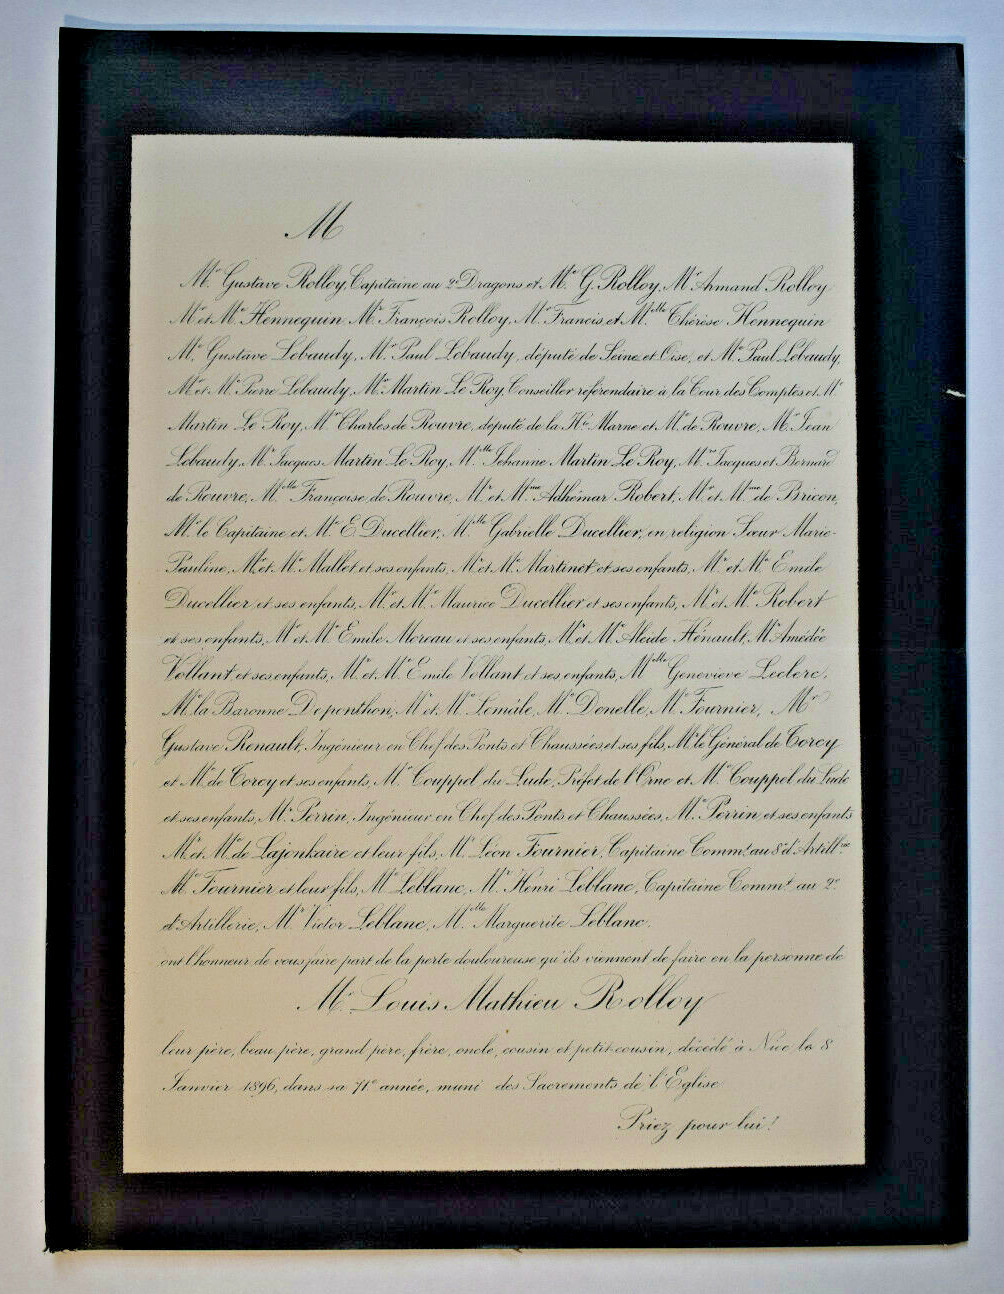 M
Mr Gustave Rolloy, Capitaine au 2e Dragons et Me G. Rolloy, Mr Armand Rolloy
Mr et Me Hennequin Mr François Rolloy, Mr Francis et Melle Thérèse Hennequin
Me Gustave Lebaudy, Mr Paul Lebaudy, député de Seine et Oise, et Me Paul Lebaudy,
Mr et Me Pierre Lebaudy, Mr Martin Le Roy, Conseiller référendaire à la Cour des Comptes et Me
Martin Le Roy, Mr Charles de Rouvre, député de la Hte Marne et Me de Rouvre, Mr Jean
Lebaudy, Mr Jacques Martin Le Roy, Melle Jehanne Martin Le Roy, Mrs Jacques et Bernard
de Rouvre, Melle Françoise de Rouvre, Mr et Mme Adhémar Robert, Mr et Mme de Bricon,
Mr le Capitaine et Me E. Ducellier, Melle Gabrielle Ducellier, en religion Sœur Marie-
Pauline, Mr et Me Mallet et ses enfants, Mr et Me Martinet et ses enfants, Mr et Me Emile
Ducellier et ses enfants, Mr et Me Maurice Ducellier et ses enfants, Mr et Me Robert
et ses enfants, Mr et Me Emile Moreau et ses enfants, Mr et Me Alcide Hénault, Me Amédée
Vollant et ses enfants, Mr et Me Emile Vollant et ses enfants, Melle Geneviève Leclerc,
Me la Baronne Deponthon, Mr et Me Lemâle, Me Denelle, Me Fournier, Mr
Gustave Renault, Ingénieur en Chef des Ponts et Chaussées et ses fils, Mr le Général de Torcy
et Me de Torcy et ses enfants, Mr Couppel du Lude, Préfet de l'Orne et Me Couppel du Lude
et ses enfants, Mr Perrin, Ingénieur en Chef des Ponts et Chaussées, Me Perrin et ses enfants
Mr et Me de Lajonkaire et leur fils, Mr Léon Fournier, Capitaine Commt au 8e d'Artillrie
Me Fournier et leur fils, Me Leblanc, Mr Henri Leblanc, Capitaine Commt au 2e
d'Artillerie, Mr Victor Leblanc, Melle Marguerite Leblanc.
ont l'honneur de vous faire part de la perte douloureuse qu'ils viennent de faire en la personne de
Mr Louis Mathieu Rolloy
leur père, beau-père, grand père, frère, oncle, cousin et petit-cousin, décédé à Nice le 8
Janvier 1896, dans sa 71e année, muni des Sacrements de l'Eglise
Priez pour lui!